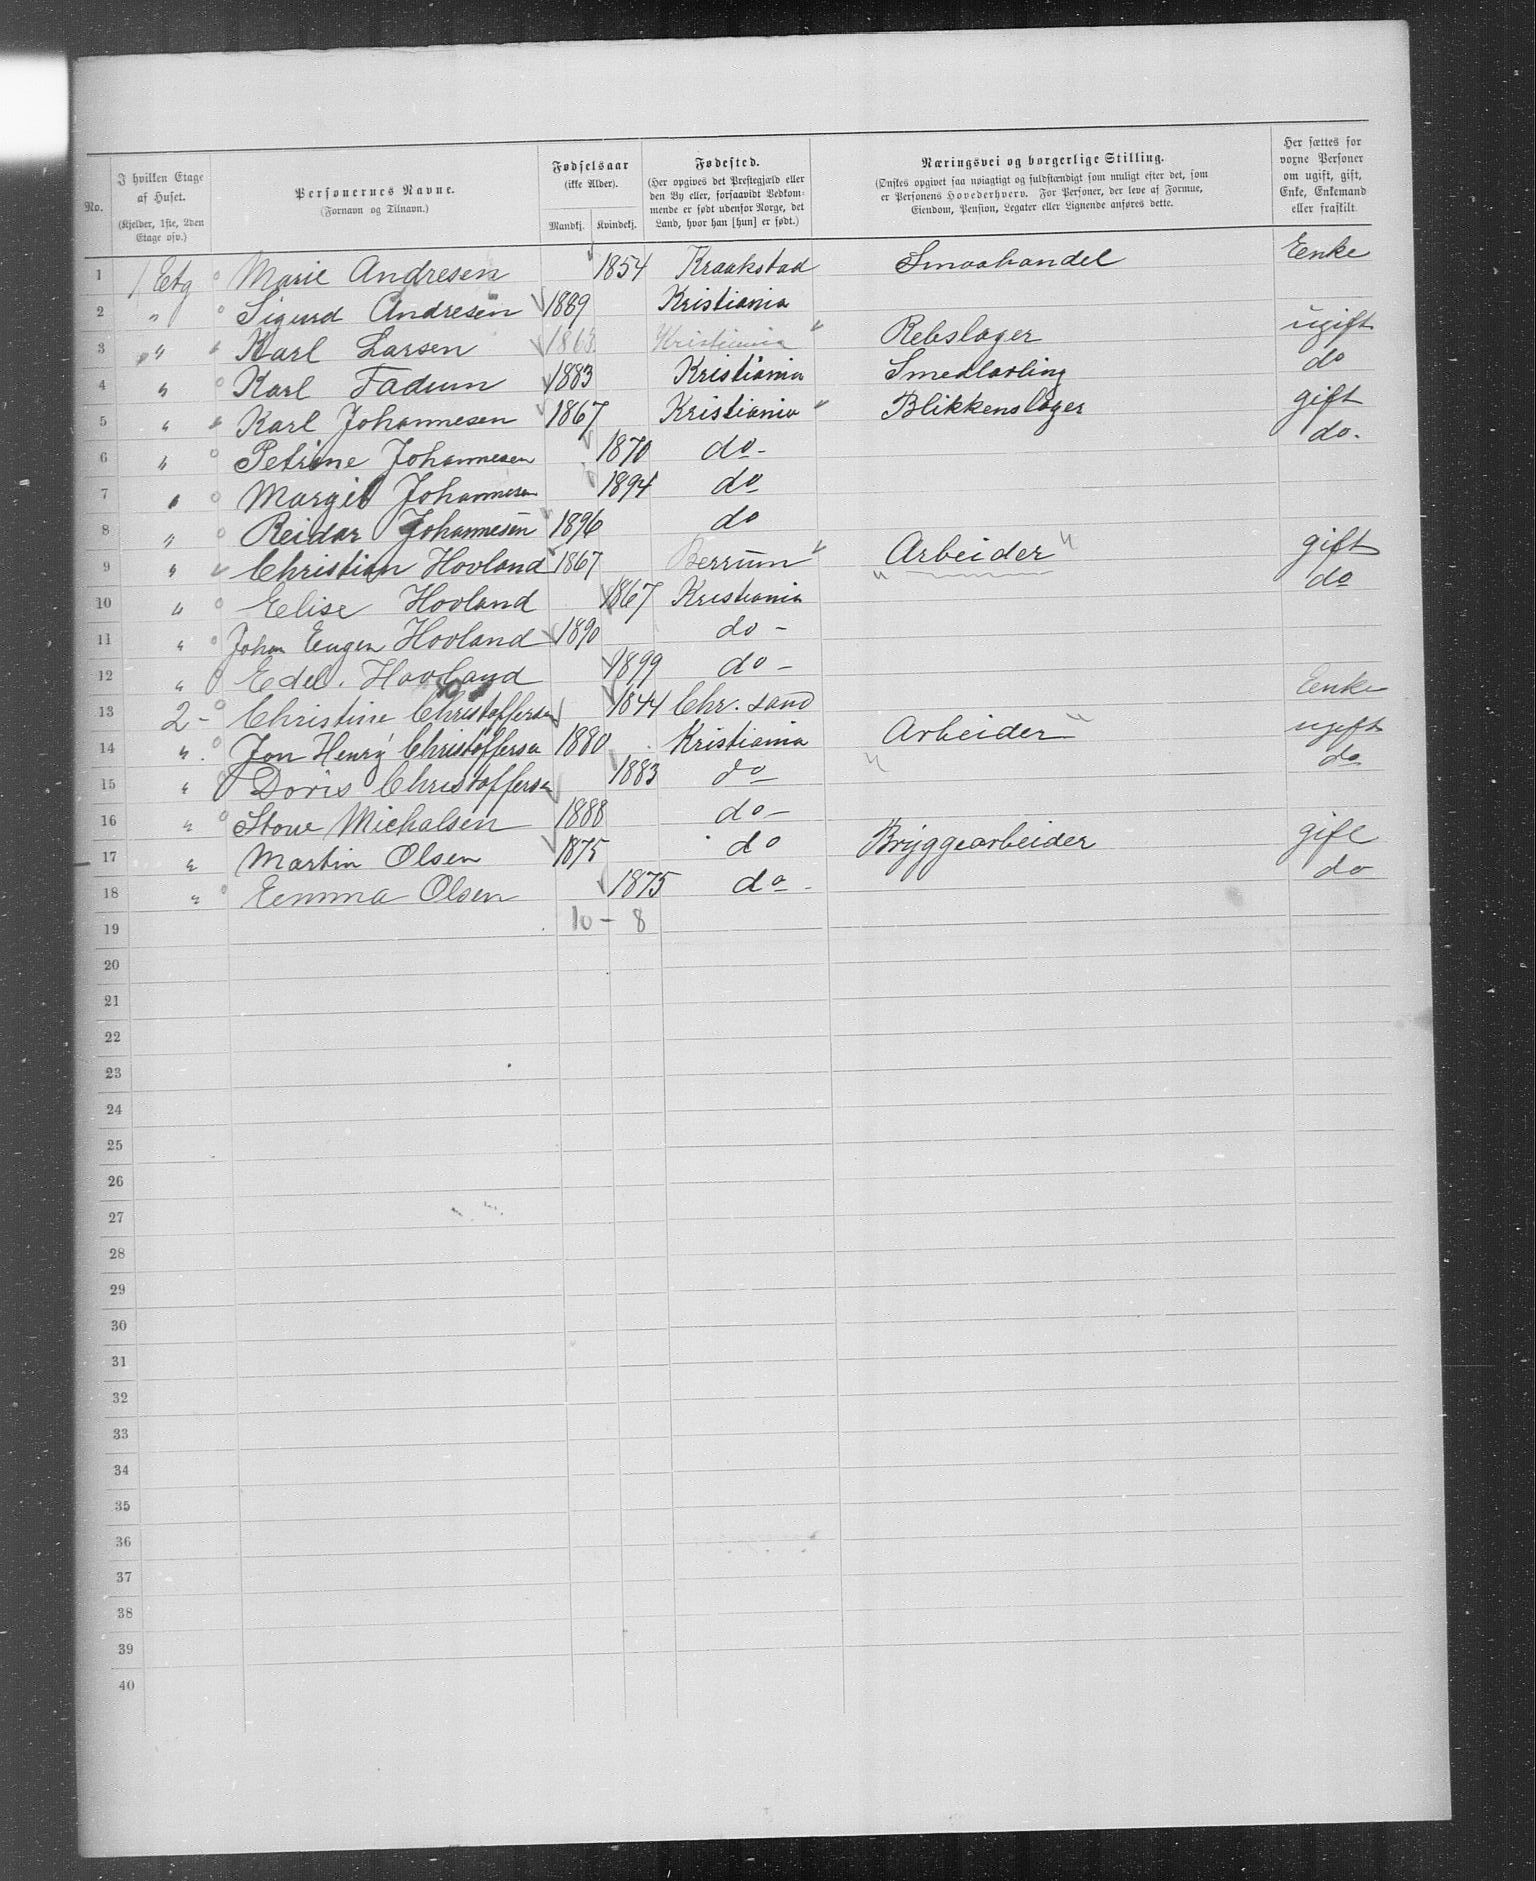 No. | I hvilken Etage af Huset. (Kjelder, 1ste, 2den Etage osv.) | Personernes Navne. (Fornavn og Tilnavn.) | Fødselsaar (ikke Alder). Mandkj. Kvindekj. | Fødested. (Her opgives det Prestegjæld eller den By eller, forsaavidt Vedkommende er født udenfor Norge, det Land, hvor han [hun] er født.) | Næringsvei og borgerlige Stilling. (Ønskes opgivet saa nøiagtigt og fuldstændigt som muligt efter det, som er Personens Hovederhverv. For Personer, der leve af Formue, Eiendom, Pension, Legater eller Lignende anføres dette. | Her sættes for voxne Personer om ugift, gift, Enke, Enkemand eller fraskilt
1 1 Etg Marie Andresen 1854 Kraakstad Smaahandel Eenke
2 " Sigurd Andresen 1889 Kristiania
3 " Karl Larsen 1863 Kristiania " Rebslager ugift
4 " Karl Fadum 1883 Kristiania Smedlærling do
5 " Karl Johannesen 1867 Kristiania " Blikkenslager gift
6 " Petrine Johannesen 1870 do- do-
7 " Margit Johannesen 1894 do
8 " Reidar Johannesen 1896 do
9 " Christian Hovland 1867 Berrum " Arbeider " gift
10 " Eelise Hovland 1867 Kristiania " do
11 " Johan Eugen Hovland 1890 do -
12 " Edel. Hovland 1899 do -
13 2 - Christine Christoffersen 1844 Chr. sand Eenke
14 " Jon Henry Christoffersen 1880 Kristiania Arbeider " ugift
15 " Doris Christoffersen 1883 do " do
16 " Michalsen 1888 do -
17 " Martin Olsen 1875 do Bryggearbeider gift
18 " Eemma Olsen 1875 do - do
19 10 - 8
20
21
22
23
24
25
26
27
28
29
30
31
32
33
34
35
36
37
38
39
40